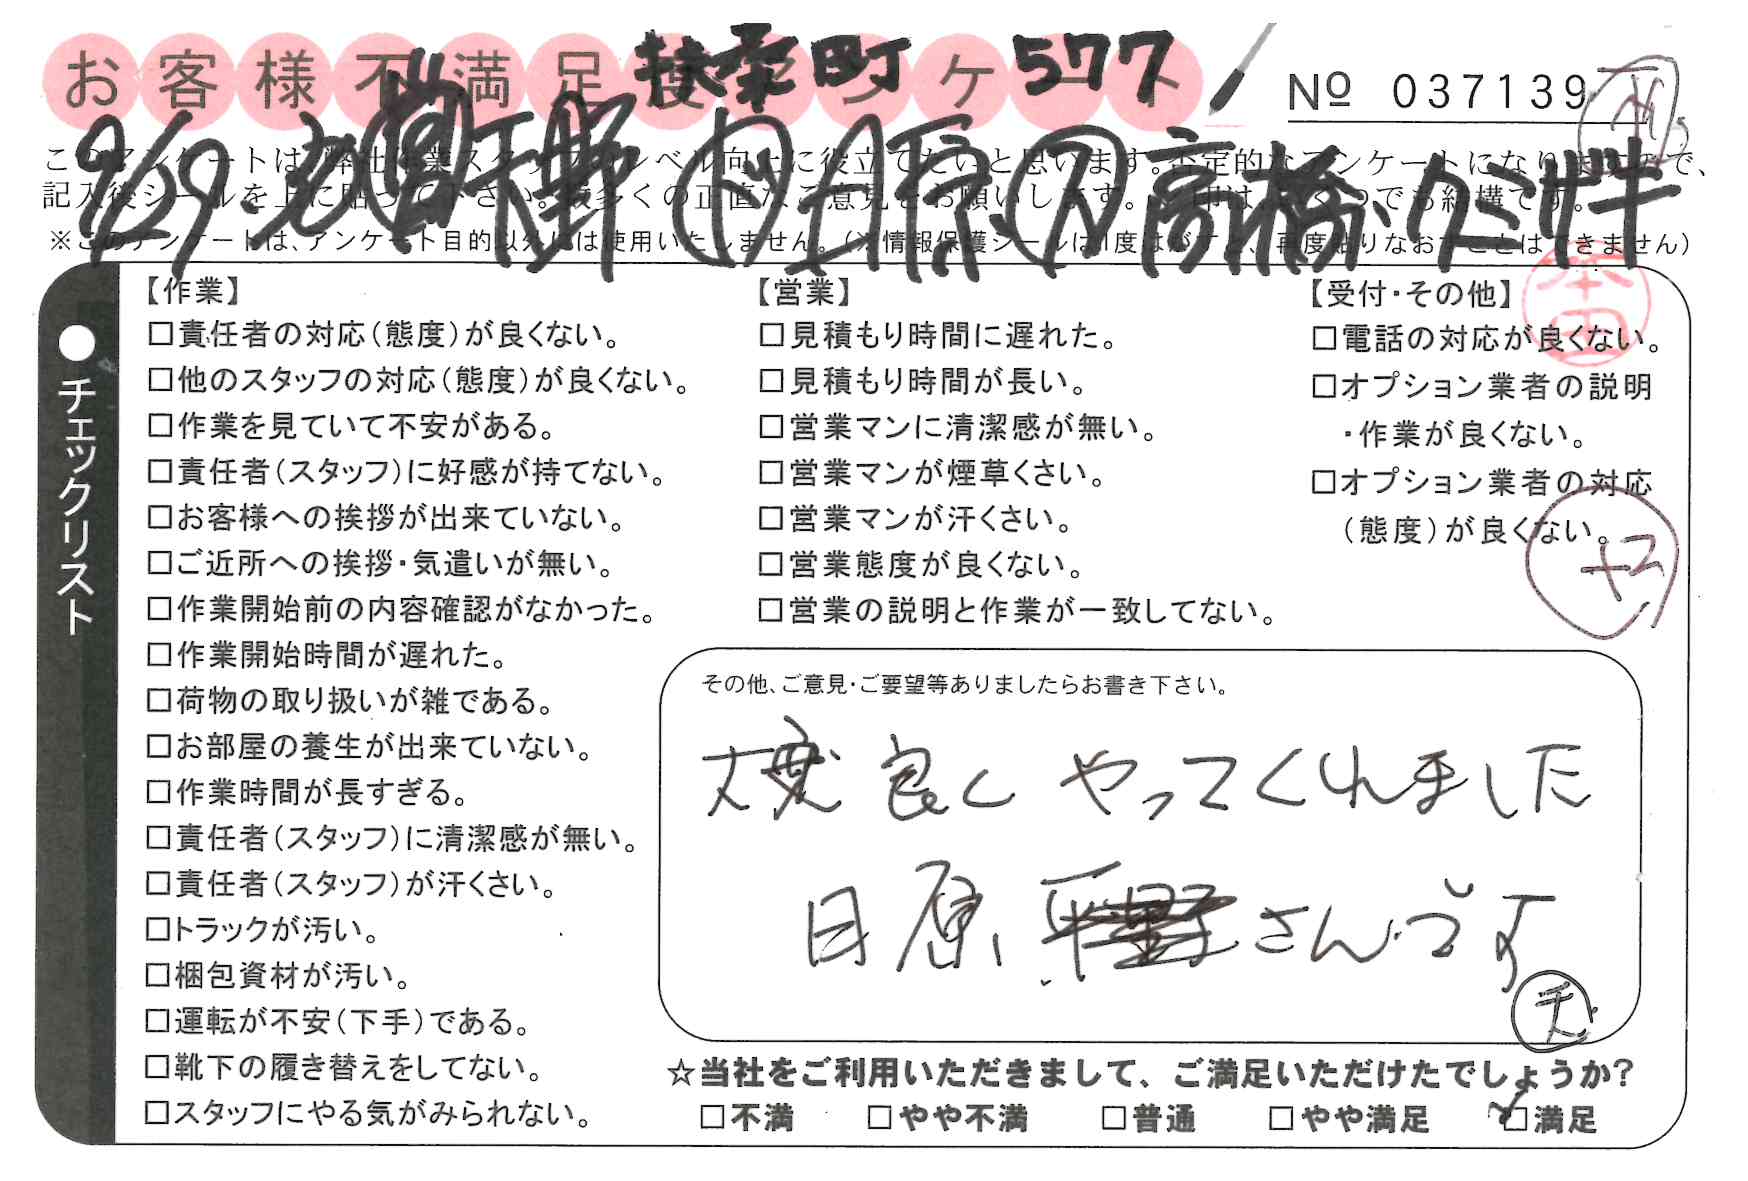 お客様不満足度アンケート
扶桑町 577
Nº 037139
9/29
高橋
このアンケートは、弊社作業スタッフのレベル向上に役立てたいと思います。否定的なアンケートになりますので、
記入後シールを上に貼って下さい。数多くの正直なご意見をお願いします。✓印は、いくつでも結構です。
※このアンケートは、アンケート目的以外には使用いたしません。(※情報保護シールは1度はがすと、再度貼りなおすことはできません)
本田
●チェックリスト
【作業】
□責任者の対応(態度)が良くない。
□他のスタッフの対応(態度)が良くない。
□作業を見ていて不安がある。
□責任者(スタッフ)に好感が持てない。
□お客様への挨拶が出来ていない。
□ご近所への挨拶・気遣いが無い。
□作業開始前の内容確認がなかった。
□作業開始時間が遅れた。
□荷物の取り扱いが雑である。
□お部屋の養生が出来ていない。
□作業時間が長すぎる。
□責任者(スタッフ)に清潔感が無い。
□責任者(スタッフ)が汗くさい。
□トラックが汚い。
□梱包資材が汚い。
□運転が不安(下手)である。
□靴下の履き替えをしてない。
□スタッフにやる気がみられない。
【営業】
□見積もり時間に遅れた。
□見積もり時間が長い。
□営業マンに清潔感が無い。
□営業マンが煙草くさい。
□営業マンが汗くさい。
□営業態度が良くない。
□営業の説明と作業が一致してない。
【受付・その他】
□電話の対応が良くない。
□オプション業者の説明
・作業が良くない。
□オプション業者の対応
(態度)が良くない。
その他、ご意見・ご要望等ありましたらお書き下さい。
大変良くやってくれました
日原、平野さんです
☆当社をご利用いただきまして、ご満足いただけたでしょうか?
□不満 □やや不満 □普通 □やや満足 ☑満足